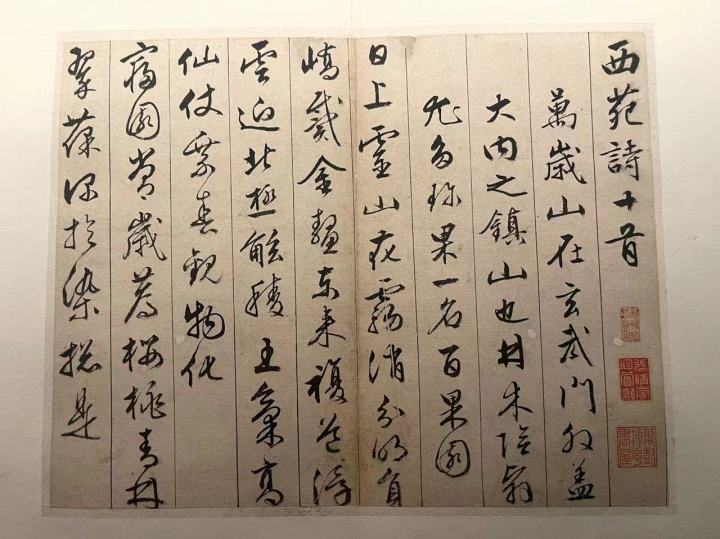 西苑詩十首
萬歲山在玄武門外蓋
大内之鎮山也林木陰翳
尤多珍果一名百果園
日上靈山花霧消分明員
嶠戴金鼇東來複道浮
雲迥北極觚稜王氣高
仙仗乘春觀物化
寢園常歲薦櫻桃青林
翠葆深於染總是